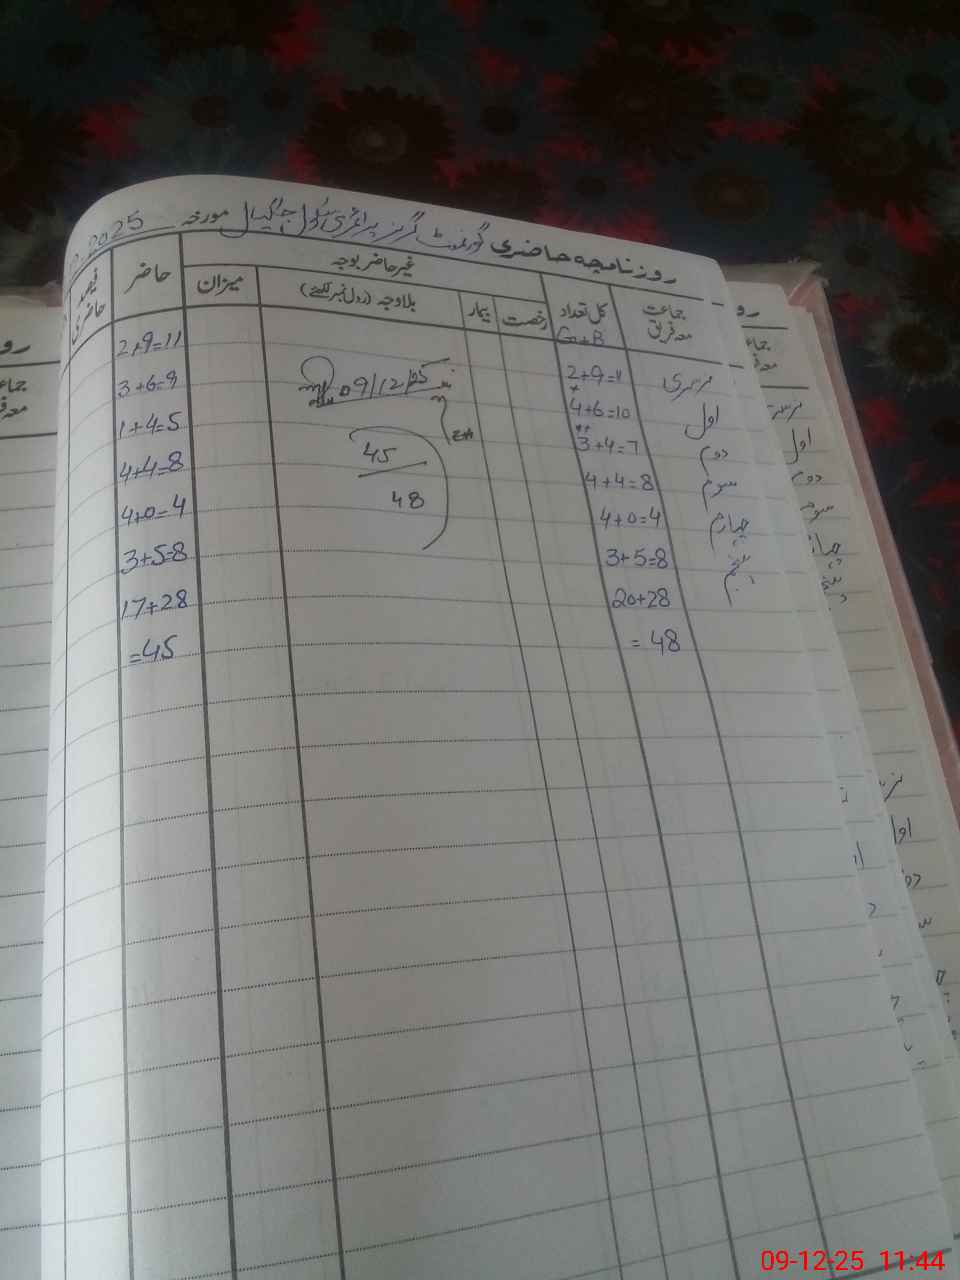 روزنامچہ حاضری گورنمنٹ گرلز پرائمری سکول مورخہ 2025
جماعت معہ فریق کل تعداد غیر حاضر بوجہ حاضر فیصد حاضری
رخصت بیمار بلاوجہ (رول نمبر لکھئے) میزان
G+B
نرسری 2+9=11 2+9=11
اول 4+6=10 09/12/25 3+6=9
دوم 3+4=7 45 1+4=5
سوم 4+4=8 48 4+4=8
چہارم 4+0=4 4+0=4
پنجم 3+5=8 3+5=8
20+28 17+28
=48 =45
09-12-25 11:44